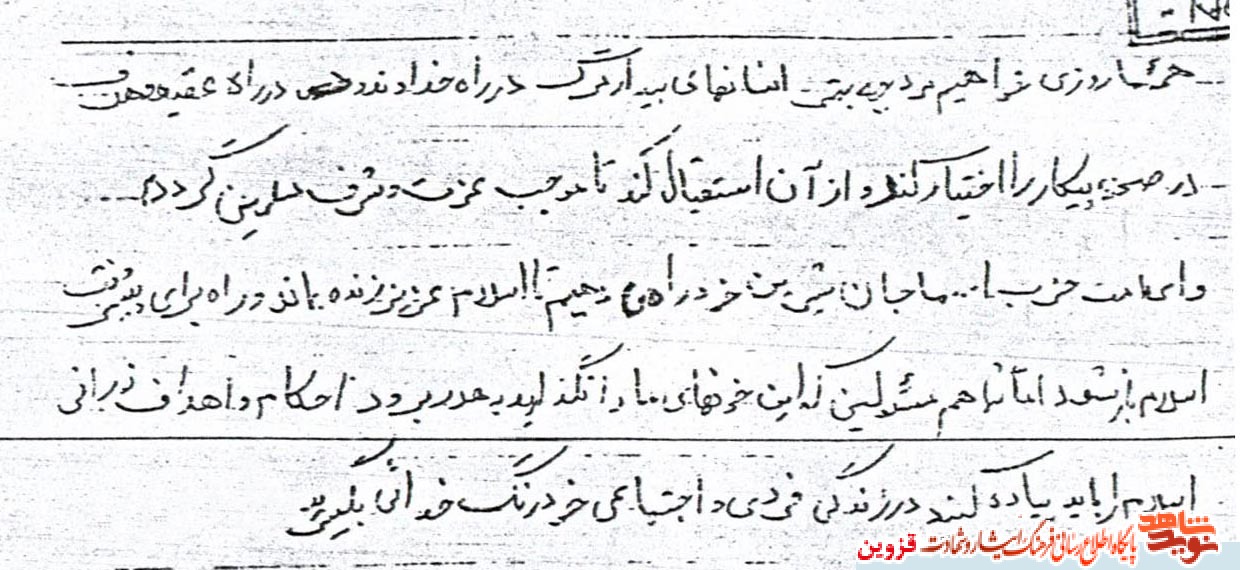 همه ما روزی خواهیم مرد چه بهتر انسانهای بیدار مرگ در راه خداوند و در راه عقیده و هدف
در صحنه پیکار را اختیار کند و از آن استقبال کند تا موجب عزت و شرف مسلمین گردد.
و ای امت حزب ا... ما جان شیرین خود را می دهیم تا اسلام عزیز زنده بماند و راه برای پیشرفت
اسلام باز شود اما شما هم مسئولین که این خونهای ما را نگذارید به هدر برود احکام و اهداف نورانی
اسلام را باید پیاده کنند در زندگی فردی و اجتماعی خود رنگ خدائی بگیرند
نوید شاهد پایگاه اطلاع رسانی فرهنگ ایثار و شهادت قزوین